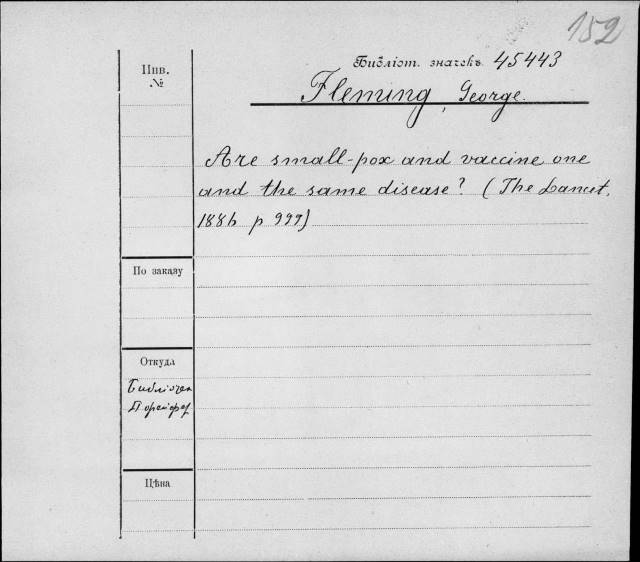 152
Библіот. значекъ 45443
Инв.
№
Fleming, George.
Are small-pox and vaccine one
and the same disease? (The Lancet,
1886 p 999)
По заказу
Откуда
Библіотек
Цѣна